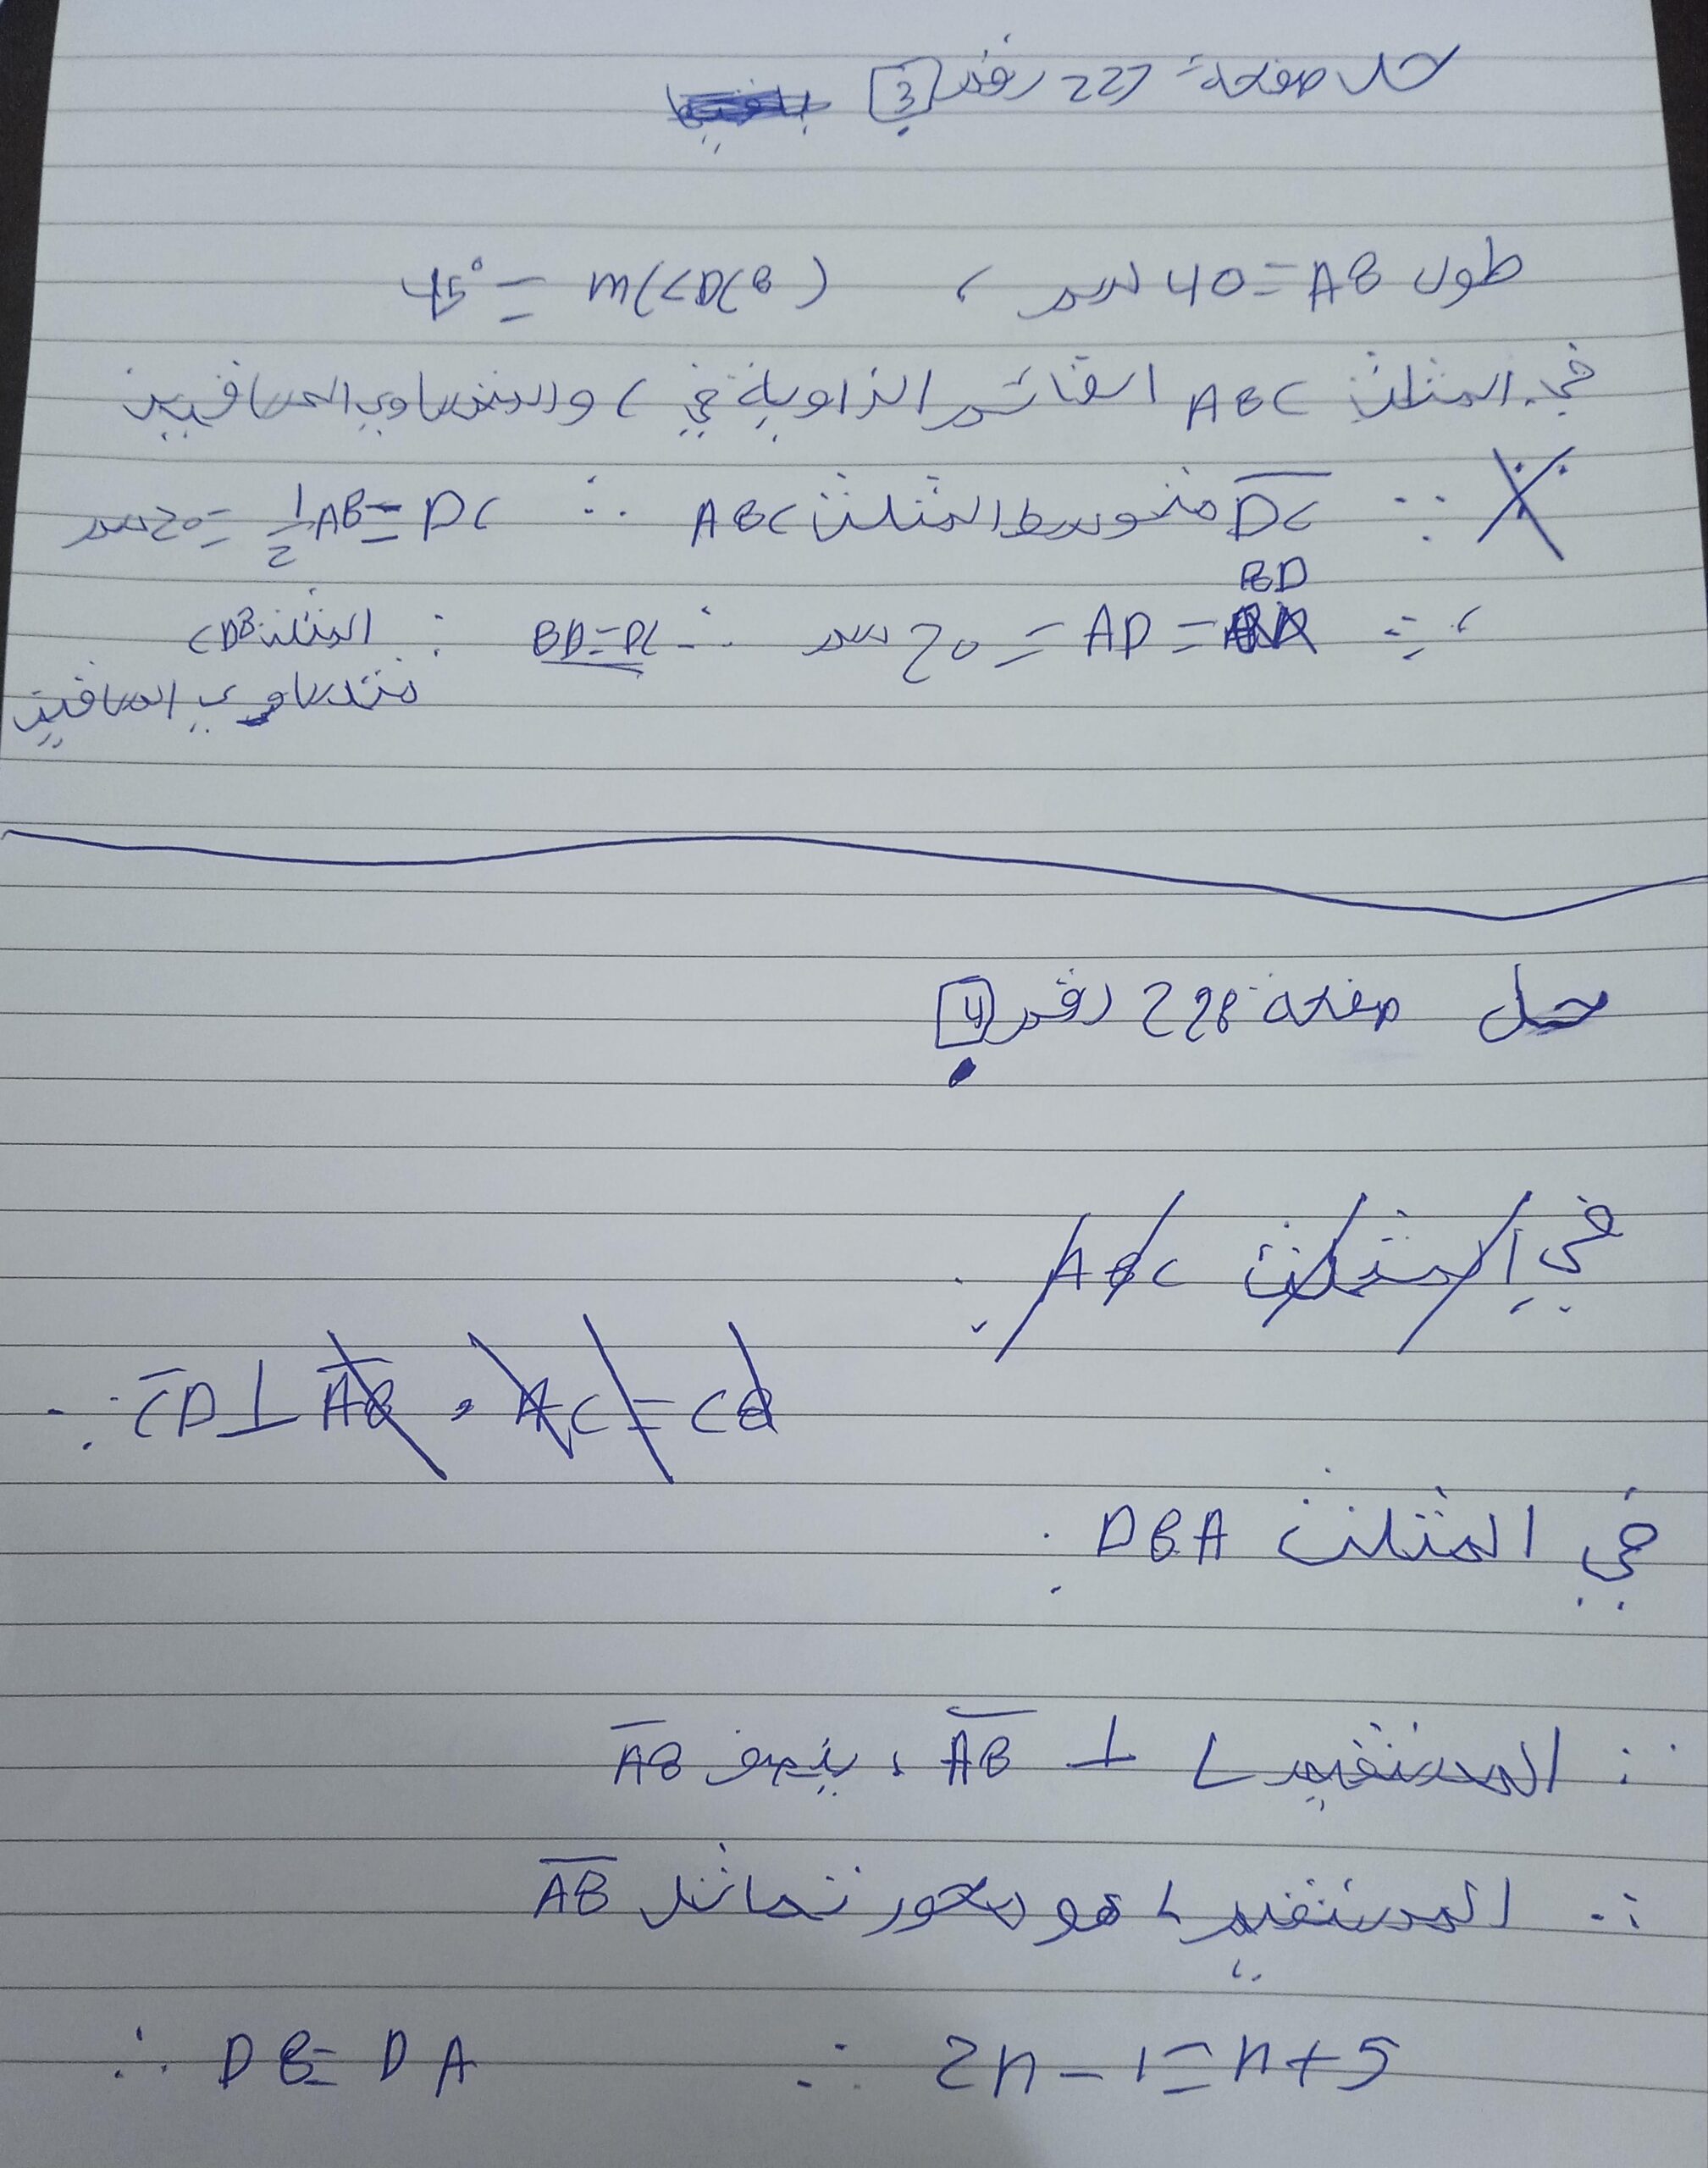 حل صفحة 227 رقم 3
طول AB = 40 سم ، m(<DCB) = 45°
في المثلث ABC القائم الزاوية في C والمتساوي الساقين
∵ DC متوسط المثلث ABC ∴ DC = ½ AB = 20 سم
BD
، ∵ = AD = 20 سم ∴ BD = DC ∴ المثلث CDB
متساوي الساقين
حل صفحة 228 رقم 4
في المثلث ABC :
∵ CD ⊥ AB ، AC = CB
في المثلث DBA :
∵ المستقيم L ⊥ AB ، ينصف AB
∴ المستقيم L هو محور تماثل AB
∴ DB = DA ∴ 2n - 1 = n + 5